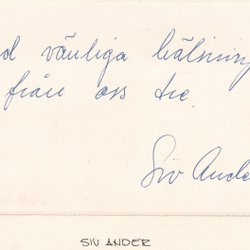 d vänliga hälning
från oss tre.
Siv Ande
SIV ANDER